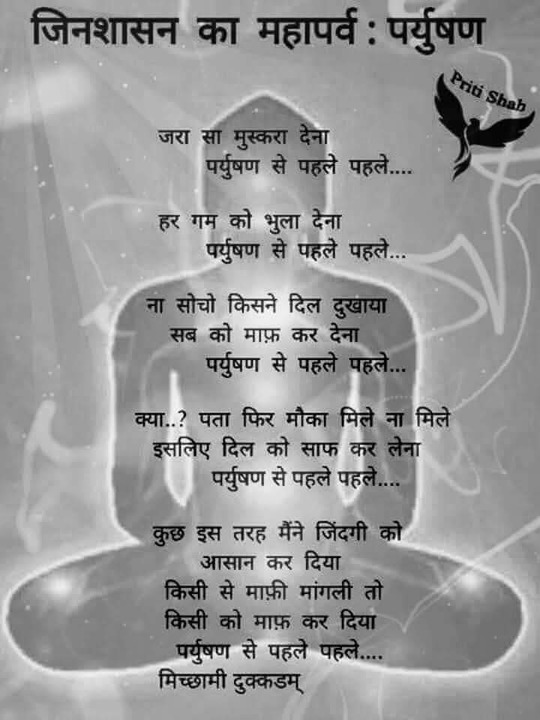 जिनशासन का महापर्व : पर्युषण
Priti Shah
जरा सा मुस्करा देना
पर्युषण से पहले पहले....
हर गम को भुला देना
पर्युषण से पहले पहले...
ना सोचो किसने दिल दुखाया
सब को माफ़ कर देना
पर्युषण से पहले पहले...
क्या..? पता फिर मौका मिले ना मिले
इसलिए दिल को साफ कर लेना
पर्युषण से पहले पहले....
कुछ इस तरह मैंने जिंदगी को
आसान कर दिया
किसी से माफ़ी मांगली तो
किसी को माफ़ कर दिया
पर्युषण से पहले पहले....
मिच्छामी दुक्कडम्